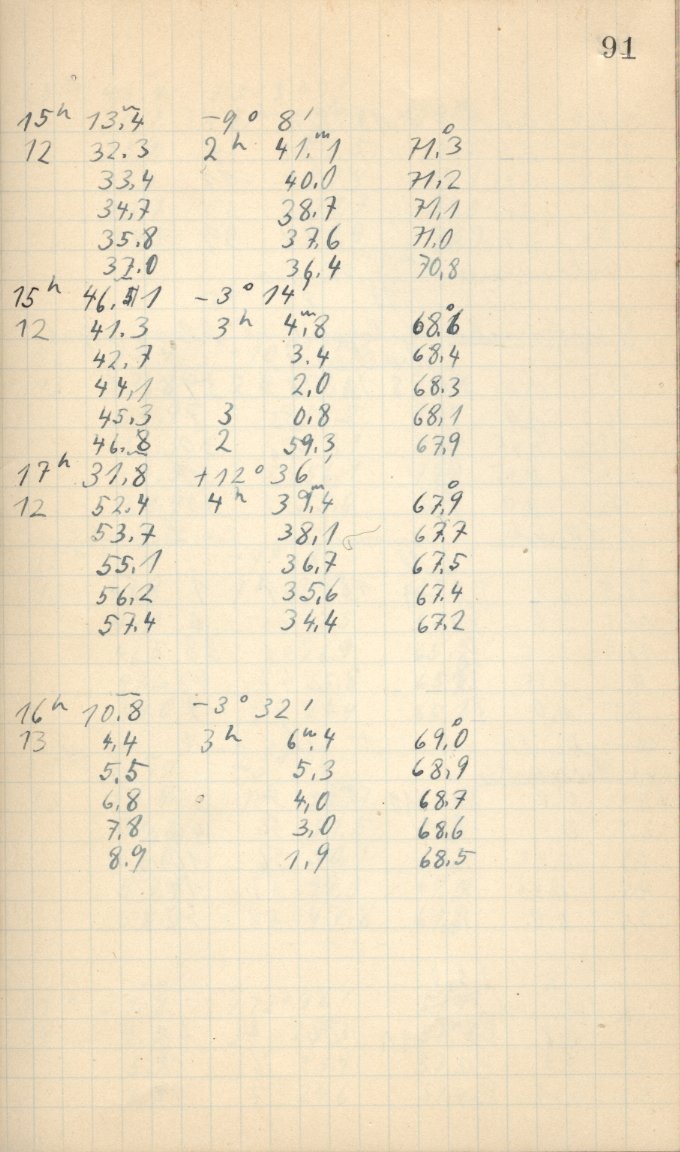 91
15ʰ 13,ᵐ4 −9° 8′
12 32.3 2ʰ 41.ᵐ1 71,°3
33,4 40,0 71,2
34,7 38.7 71,1
35,8 37,6 71,0
37,0 36,4 70,8
15ʰ 46,1 −3° 14′
12 41.3 3ʰ 4,ᵐ8 68,°6
42,7 3.4 68,4
44,1 2,0 68,3
45,3 3 0,8 68,1
46,8 2 59,3 67,9
17ʰ 31,8 +12° 36′
12 52.4 4ʰ 39,ᵐ4 67,°9
53,7 38,1 67,7
55,1 36,7 67,5
56,2 35,6 67,4
57,4 34,4 67,2
16ʰ 10,ᵐ8 −3° 32′
13 4,4 3ʰ 6ᵐ,4 69,°0
5,5 5,3 68,9
6,8 4,0 68,7
7,8 3,0 68,6
8,9 1,9 68,5